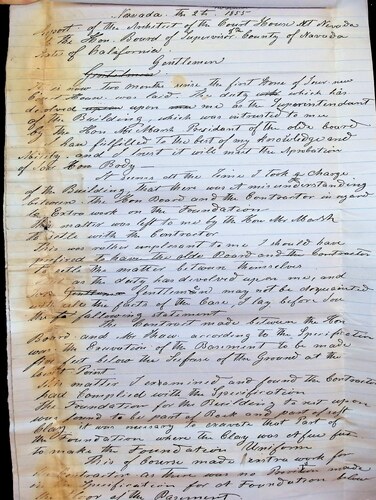 Nevada the 2th 1855
Report of the Architect of the Court House At Nevada
to the Hon. Board of Supervisor County of Nevada
State of California
Gentlemen
Gentlemen
It is now two months since the first Stone of Your new
Court House was Laid. The Duty which has
devolved upon upon me as the Superintendant
of the Building, which was intrusted to me
By the Hon Mr Mash President of the olde Board
I have fulfilled to the best of my knowledge and
Ability, and I trust it will meet the Aprobation
of Your Hon Body
It seems at the time I took Charge
of the Building, that there was A misunderstanding
between the Hon Board and the Contractor in regard
to Extra work on the Foundation.
The matter was left to me by the Hon Mr Mash
to settle with the Contractor
This was rather unpleasant to me I should have
prefered to have the olde Board and the Contractor
to settle the matter between themselves
as the duty has devolved upon me, and
Gentlemen may not be dequainted
with all the facts of the Case, I lay before You
the following statement
The Contract made between the Hon
Board and Mr Shaw, according to the Specification
was the Exevation of the Basment to be made
feet below the Surfase of the Ground at the
Point
this matter I examined and found the Contractor
had Complied with the Specification
the Foundation for the Building to rest upon
was found to be part of Rock and part of soft
Clay, it was nessesary to exevate that part of
the Foundation where the Clay was feet
to make the Foundation Uniform
This of Course made extra work for
there Provision made
in Specification for A Foundation below
the floor of the Basement